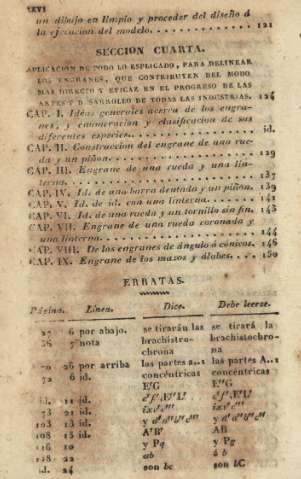 LXVI
un dibujo en limpio y proceder del diseño á
la ejecucion del modelo. . . . . . . . . . . . 121
SECCION CUARTA.
APLICACION DE TODO LO ESPLICADO, PARA DELINEAR
LOS ENGRANES, QUE CONTRIBUYEN DEL MODO
MAS DIRECTO Y EFICAZ EN EL PROGRESO DE LAS
ARTES Y DESARROLLO DE TODAS LAS INDUSTRIAS. 124
CAP. I. Ideas generales acerca de los engra-
nes, y enumeracion y clasificacion de sus
diferentes especies. . . . . . . . . . . . id.
CAP. II. Construccion del engrane de una rue-
da y un piñon. . . . . . . . . . . . 129
CAP. III. Engrane de una rueda y una lin-
terna. . . . . . . . . . . . 137
CAP. IV. Id. de una barra dentada y un piñon. 139
CAP. V. Id. de id. con una linterna. . . . . . 141
CAP. VI. Id. de una rueda y un tornillo sin fin. 143
CAP. VII. Engrane de una rueda coronada y
una linterna. . . . . . . . . . . . 144
CAP. VIII. De los engranes de ángulo ó cónicos. 146
CAP. IX. Engrane de los mazos y álabes. . . . 150
ERRATAS.
Página. Línea. Dice. Debe leerse.
27 6 por abajo. se tirarán las se tirará la
36 7 nota brachistro- brachistochro-
chrona na
26 por arriba las partes las partes
72 6 id. concéntricas concéntricas
E'G E''G
id. 11 id.
73 21 id.
103 13 id.
108 15 id. A'B' AB
116 10 y Pq y Pg
118 22 ab á b
id. 24 son bc son bC